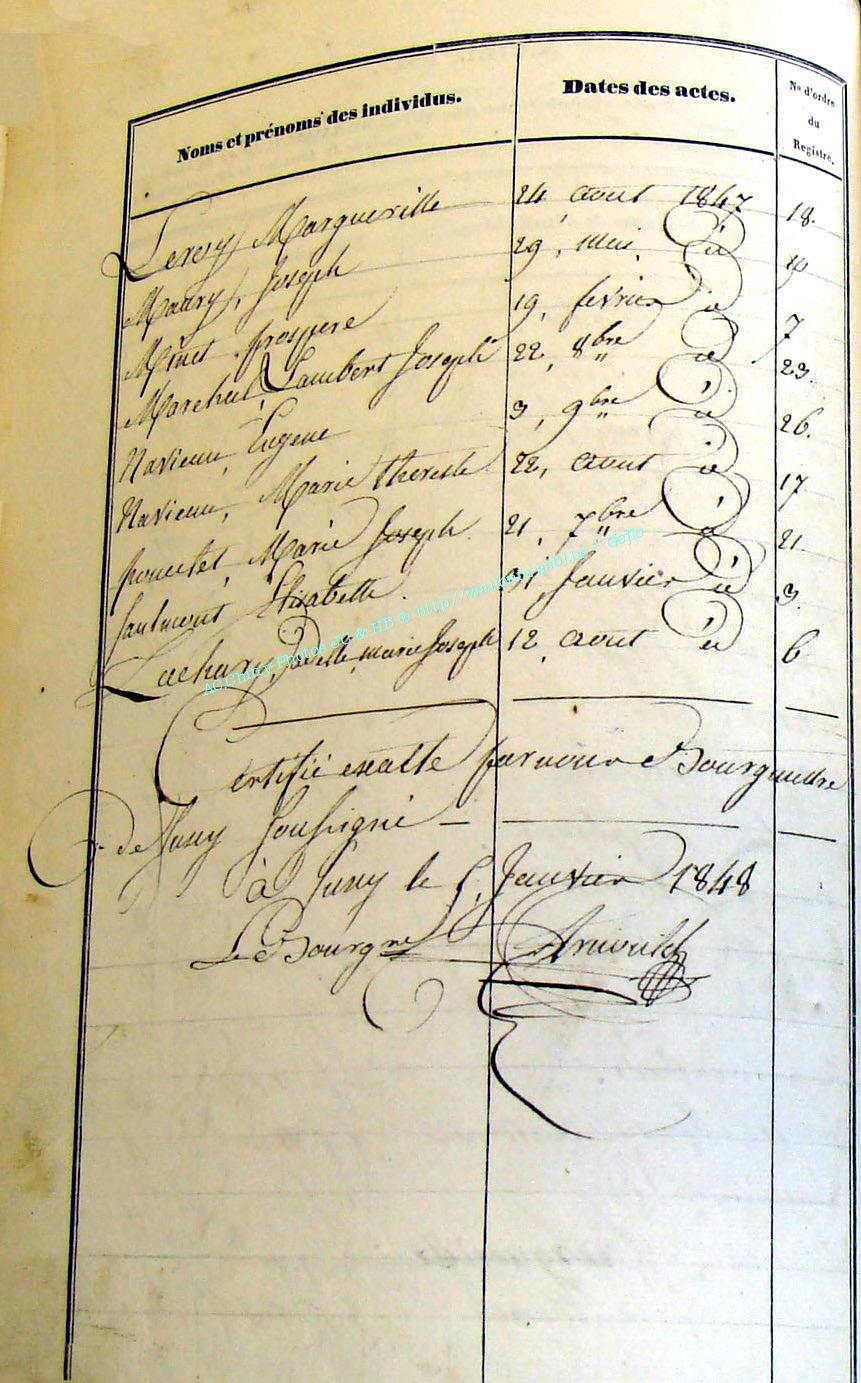 Noms et prénoms des individus. Dates des actes. No d'ordre du Registre.
Leroy Marguerille 24, aout 1847 18.
Maury, Joseph 29, mai, id
Minet prospere 19, fevrier id 7
Marchal, Lambert Joseph 22, 8bre id 23.
Navieau, Eugene 3, 9bre id 26.
Navieau, Marie therese 22, aout id 17
poncelet, Marie Joseph 21, 7bre id 21.
Saulmont Elisabeth. 31, Janvier id 3.
Lachary, marie Joseph 12, aout id 6
Certifié exacte par nous Bourguestre
de Jusny soussigné
à Jusny le 5, Janvier 1848
Le Bourgre Arnould